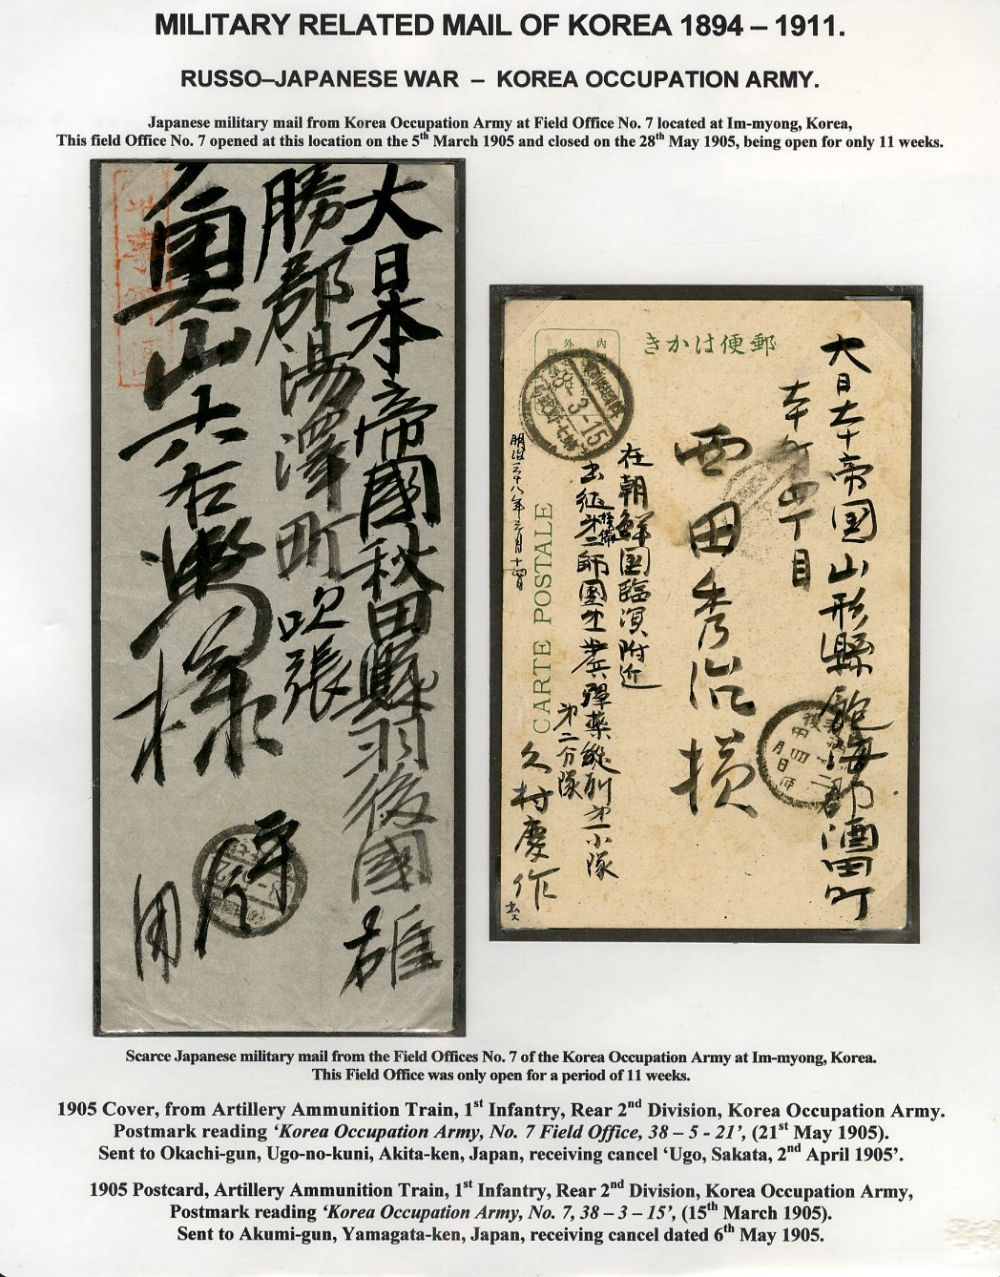 MILITARY RELATED MAIL OF KOREA 1894 – 1911.
RUSSO–JAPANESE WAR – KOREA OCCUPATION ARMY.
Japanese military mail from Korea Occupation Army at Field Office No. 7 located at Im-myong, Korea,
This field Office No. 7 opened at this location on the 5th March 1905 and closed on the 28th May 1905, being open for only 11 weeks.
大日本帝國秋田縣羽後國雄
勝郡湯澤町
吹張
奥山六右
様
用
郵便はかき
CARTE POSTALE
大日本帝国山形縣飽海郡酒田町
本町
丁目
西田秀治様
在朝鮮国臨溟附近
出征
師團
歩兵彈藥縦列第一小隊
第二分隊
久村慶作
明治三十八年三月十四日
38-3-15
Scarce Japanese military mail from the Field Offices No. 7 of the Korea Occupation Army at Im-myong, Korea.
This Field Office was only open for a period of 11 weeks.
1905 Cover, from Artillery Ammunition Train, 1st Infantry, Rear 2nd Division, Korea Occupation Army.
Postmark reading ‘Korea Occupation Army, No. 7 Field Office, 38 – 5 - 21’, (21st May 1905).
Sent to Okachi-gun, Ugo-no-kuni, Akita-ken, Japan, receiving cancel ‘Ugo, Sakata, 2nd April 1905’.
1905 Postcard, Artillery Ammunition Train, 1st Infantry, Rear 2nd Division, Korea Occupation Army,
Postmark reading ‘Korea Occupation Army, No. 7, 38 – 3 – 15’, (15th March 1905).
Sent to Akumi-gun, Yamagata-ken, Japan, receiving cancel dated 6th May 1905.